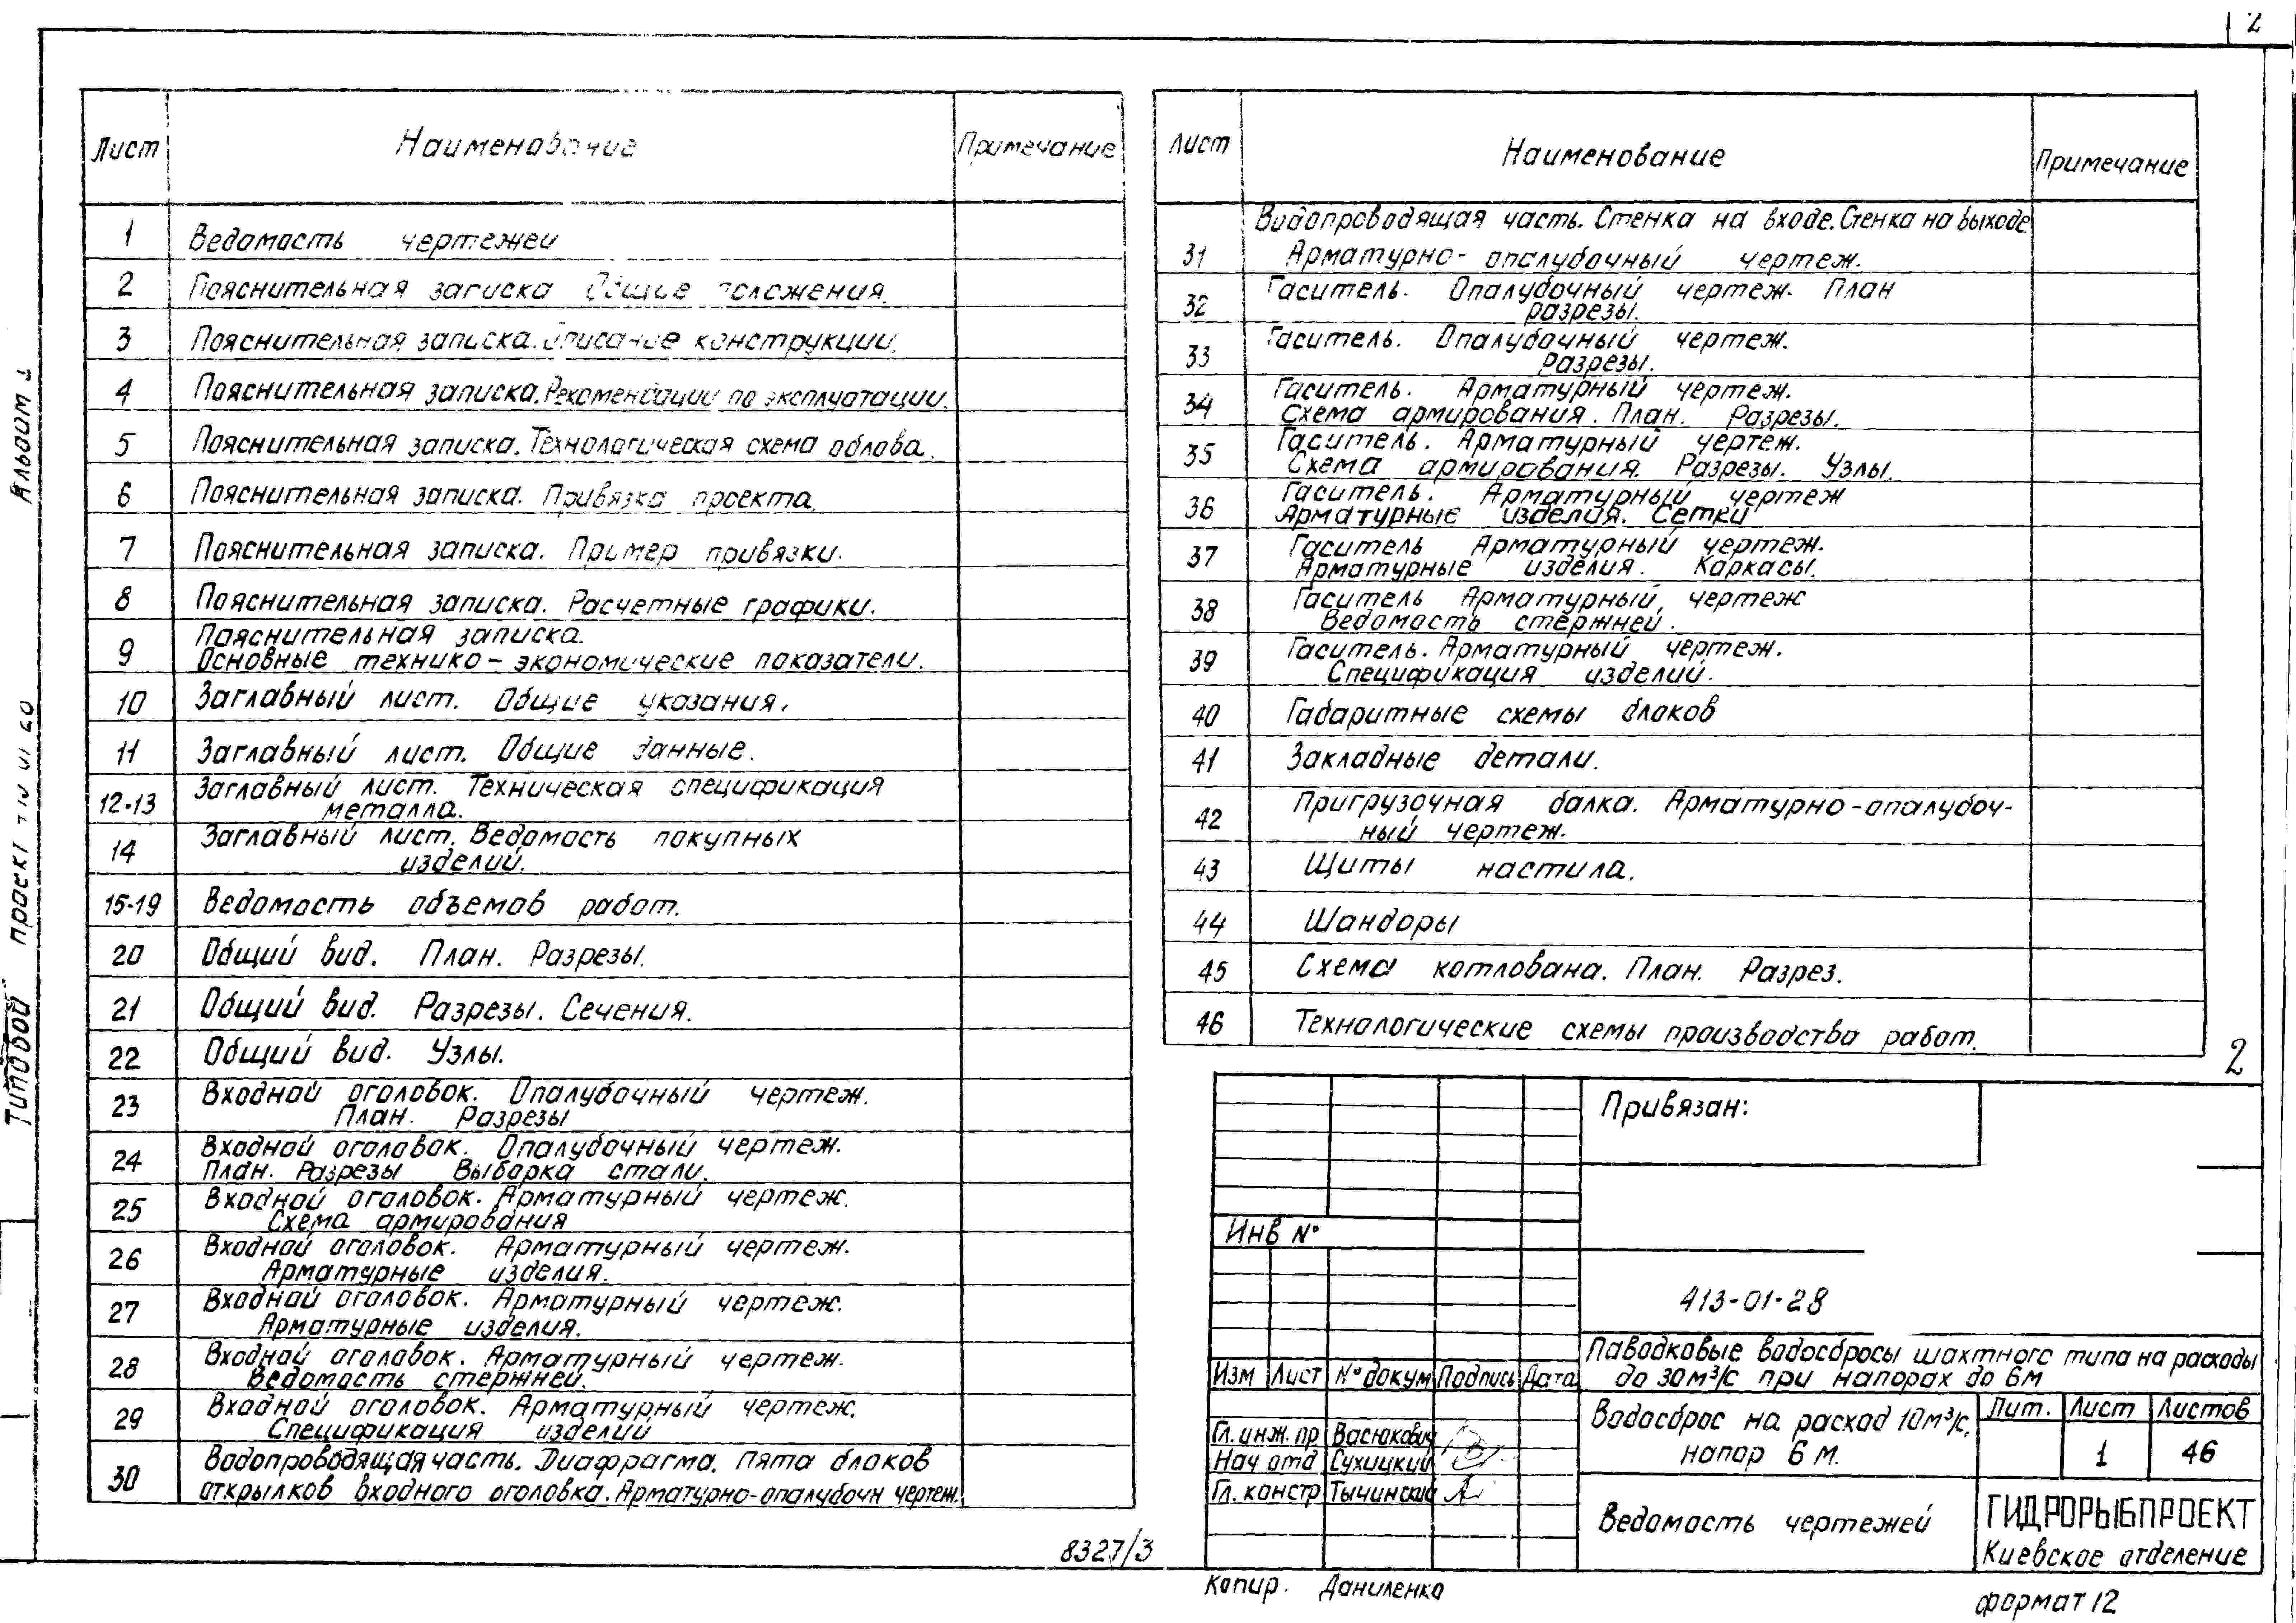 2
Лист Наименование Примечание
1 Ведомость чертежей
2 Пояснительная записка Общие положения.
3 Пояснительная записка. Описание конструкции.
4 Пояснительная записка. Рекомендации по эксплуатации.
5 Пояснительная записка. Технологическая схема облова.
6 Пояснительная записка. Привязка проекта.
7 Пояснительная записка. Пример привязки.
8 Пояснительная записка. Расчетные графики.
9 Пояснительная записка.
Основные технико-экономические показатели.
10 Заглавный лист. Общие указания.
11 Заглавный лист. Общие данные.
12-13 Заглавный лист. Техническая спецификация
металла.
14 Заглавный лист. Ведомость покупных
изделий.
15-19 Ведомость объемов работ.
20 Общий вид. План. Разрезы.
21 Общий вид. Разрезы. Сечения.
22 Общий вид. Узлы.
23 Входной оголовок. Опалубочный чертеж.
План. Разрезы
24 Входной оголовок. Опалубочный чертеж.
План. Разрезы Выборка стали.
25 Входной оголовок. Арматурный чертеж.
Схема армирования
26 Входной оголовок. Арматурный чертеж.
Арматурные изделия.
27 Входной оголовок. Арматурный чертеж.
Арматурные изделия.
28 Входной оголовок. Арматурный чертеж.
Ведомость стержней.
29 Входной оголовок. Арматурный чертеж.
Спецификация изделий
30 Водопроводящая часть. Диафрагма. Пята блоков
открылков входного оголовка. Арматурно-опалубочн чертеж.
Лист Наименование Примечание
Водопроводящая часть. Стенка на входе. Стенка на выходе
31 Арматурно-опалубочный чертеж.
32 Гаситель. Опалубочный чертеж. План
разрезы.
33 Гаситель. Опалубочный чертеж.
Разрезы.
34 Гаситель. Арматурный чертеж.
Схема армирования. План. Разрезы.
35 Гаситель. Арматурный чертеж.
Схема армирования. Разрезы. Узлы.
36 Гаситель. Арматурный чертеж
Арматурные изделия. Сетки
37 Гаситель Арматурный чертеж.
Арматурные изделия. Каркасы.
38 Гаситель Арматурный чертеж
Ведомость стержней.
39 Гаситель. Арматурный чертеж.
Спецификация изделий.
40 Габаритные схемы блоков
41 Закладные детали.
42 Пригрузочная балка. Арматурно-опалубоч-
ный чертеж.
43 Щиты настила.
44 Шандоры
45 Схема котлована. План. Разрез.
46 Технологические схемы производства работ.
2
Привязан:
Инв №
413-01-28
Паводковые водосбросы шахтного типа на расходы
до 30м³/с при напорах до 6м
Изм Лист № докум Подпись Дата
Водосброс на расход 10м³/с,
напор 6 м.
Лит. Лист Листов
1 46
Гл. инж. пр Васюкович
Нач отд Сухицкий
Гл. констр Тычинский
Ведомость чертежей
ГИДРОРЫБПРОЕКТ
Киевское отделение
8327/3
Копир. Даниленко
формат 12
Типовой проект
Альбом